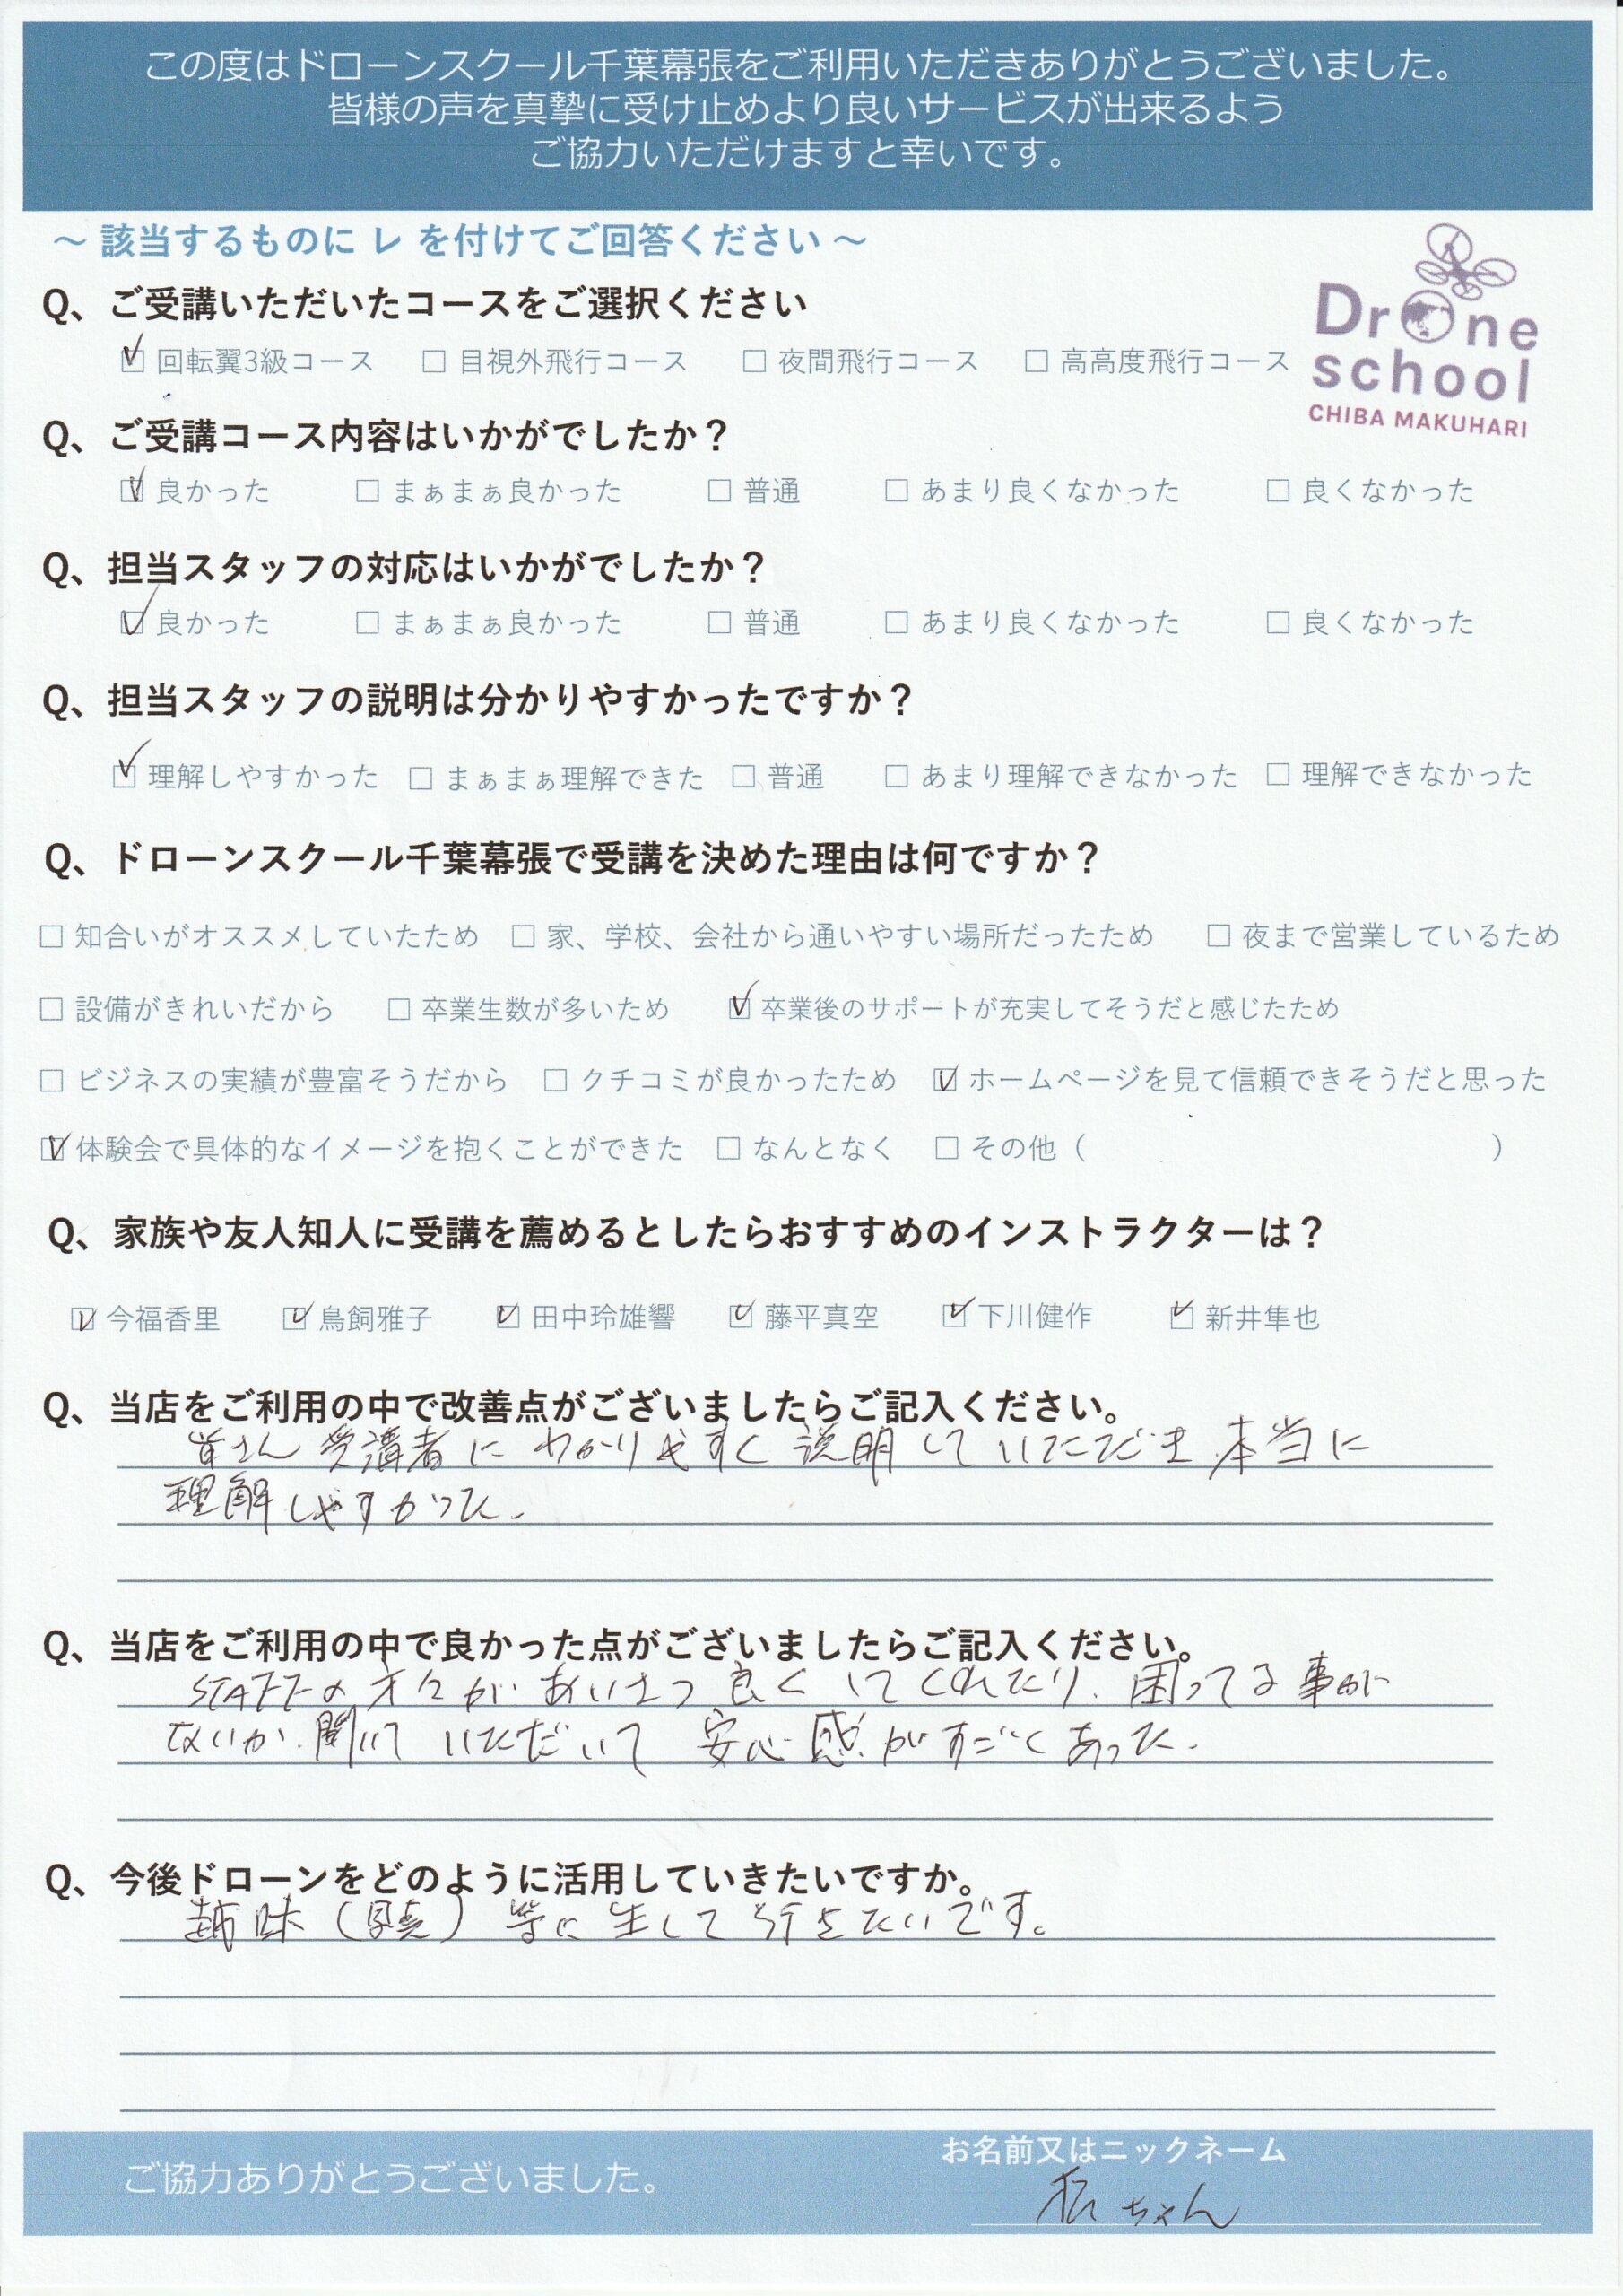 この度はドローンスクール千葉幕張をご利用いただきありがとうございました。
皆様の声を真摯に受け止めより良いサービスが出来るよう
ご協力いただけますと幸いです。
～ 該当するものに レ を付けてご回答ください ～
Drone
school
CHIBA MAKUHARI
Q、ご受講いただいたコースをご選択ください
☑ 回転翼3級コース □ 目視外飛行コース □ 夜間飛行コース □ 高高度飛行コース
Q、ご受講コース内容はいかがでしたか？
☑ 良かった □ まぁまぁ良かった □ 普通 □ あまり良くなかった □ 良くなかった
Q、担当スタッフの対応はいかがでしたか？
☑ 良かった □ まぁまぁ良かった □ 普通 □ あまり良くなかった □ 良くなかった
Q、担当スタッフの説明は分かりやすかったですか？
☑ 理解しやすかった □ まぁまぁ理解できた □ 普通 □ あまり理解できなかった □ 理解できなかった
Q、ドローンスクール千葉幕張で受講を決めた理由は何ですか？
□ 知合いがオススメしていたため □ 家、学校、会社から通いやすい場所だったため □ 夜まで営業しているため
□ 設備がきれいだから □ 卒業生数が多いため ☑ 卒業後のサポートが充実してそうだと感じたため
□ ビジネスの実績が豊富そうだから □ クチコミが良かったため ☑ ホームページを見て信頼できそうだと思った
☑ 体験会で具体的なイメージを抱くことができた □ なんとなく □ その他（ ）
Q、家族や友人知人に受講を薦めるとしたらおすすめのインストラクターは？
☑ 今福香里 ☑ 鳥飼雅子 ☑ 田中玲雄響 ☑ 藤平真空 ☑ 下川健作 ☑ 新井隼也
Q、当店をご利用の中で改善点がございましたらご記入ください。
皆さん 受講者に わかりやすく 説明して いただき 本当に
理解しやすかった。
Q、当店をご利用の中で良かった点がございましたらご記入ください。
STAFFの方々が あいさつ 良く してくれたり、困ってる事が
ないか、聞いて いただいて 安心感がすごくあった。
Q、今後ドローンをどのように活用していきたいですか。
趣味（写真）等に 生して 行きたいです。
ご協力ありがとうございました。
お名前又はニックネーム
ちゃん